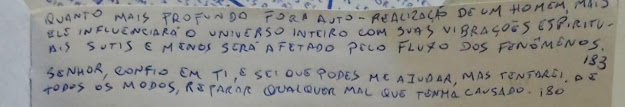 QUANTO MAIS PROFUNDO FOR A AUTO-REALIZAÇÃO DE UM HOMEM, MAIS
ELE INFLUENCIARÁ O UNIVERSO INTEIRO COM SUAS VIBRAÇÕES ESPIRITU-
AIS SUTIS E MENOS SERÁ AFETADO PELO FLUXO DOS FENÔMENOS.
183
SENHOR, CONFIO EM TI, E SEI QUE PODES ME AJUDAR, MAS TENTAREI, DE
TODOS OS MODOS, REPARAR QUALQUER MAL QUE TENHA CAUSADO. 180